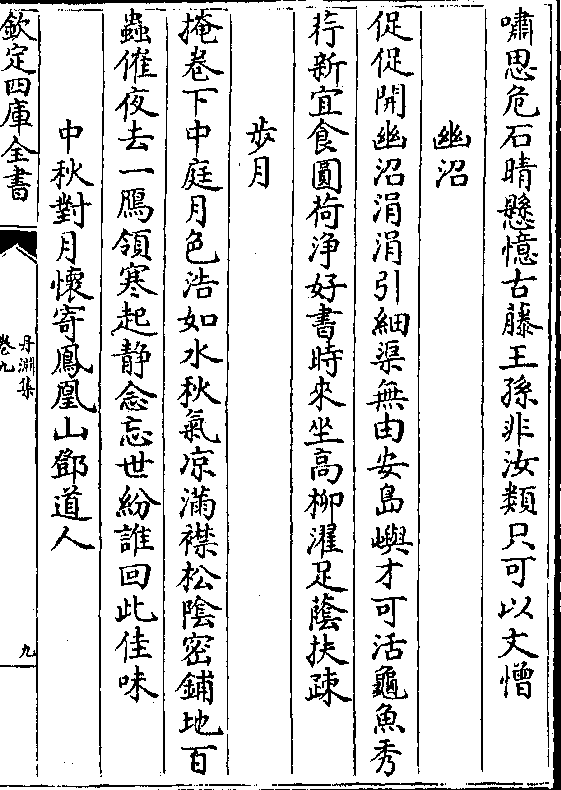 嘯思危石晴懸憶古藤王孫非汝類只可以文憎
幽沼
促促開幽沼涓涓引細渠無由安島嶼才可活龜魚秀
荇新宜食圓荷净好書時來坐高柳濯足蔭扶疎
步月
掩卷下中庭月色浩如水秋氣凉滿襟松陰密鋪地百
蟲催夜去一鴈領寒起静念忘世紛誰回此佳味
中秋對月懷寄鳳凰山鄧道人
欽定四庫全書
丹淵集
卷九
九